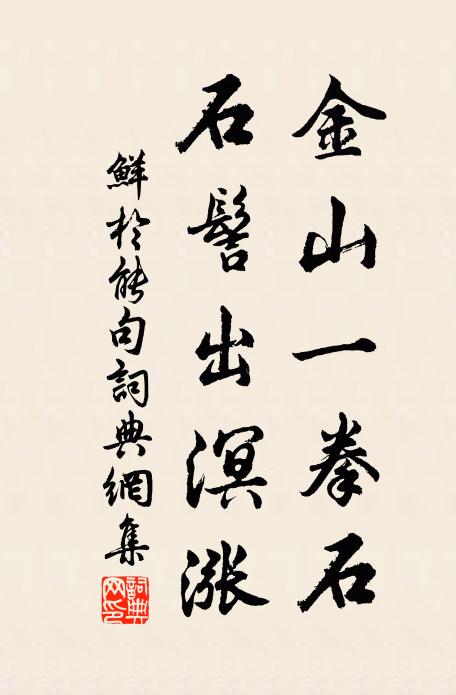 金山一拳石
石髻出溟漲
鮮於能句詞典網集
詞典网印